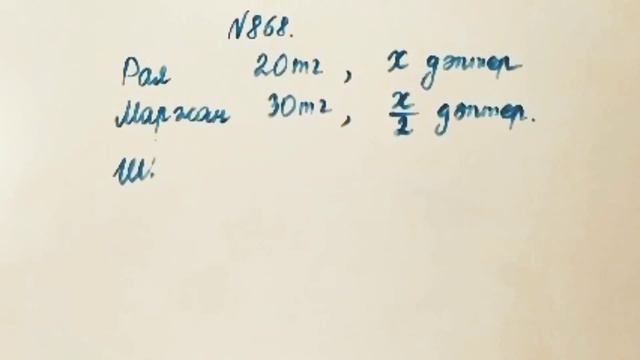 №868.
Рая 20тг, x дәптер
Маржан 30тг, x/2 дәптер.
Ш: